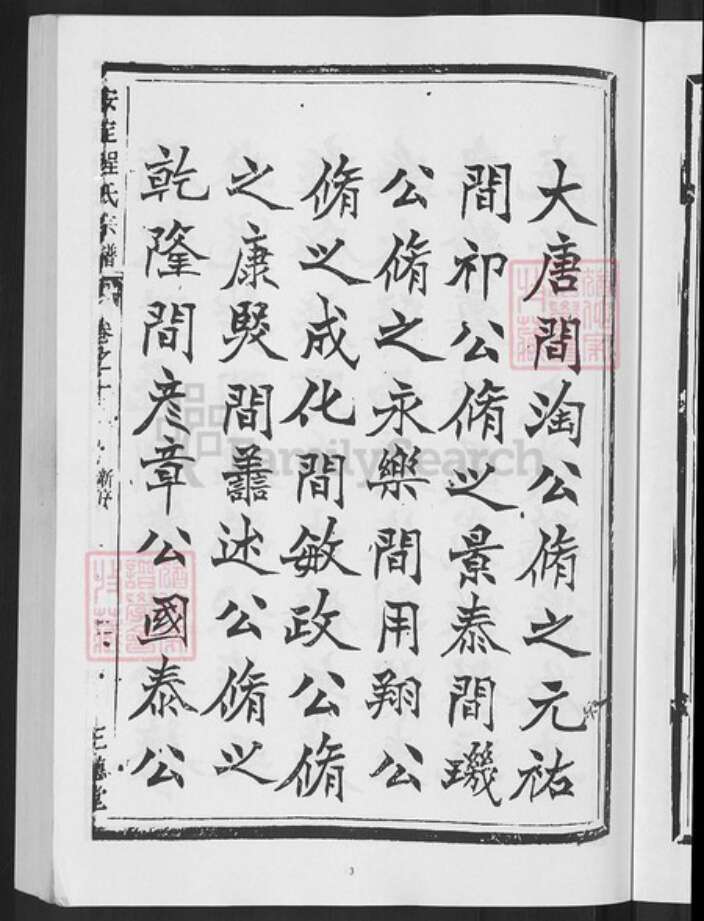 大唐間淘公脩之元祐
間祁公脩之景泰間璣
公脩之永樂間用翔公
脩之成化間敏政公脩
之康熙間謹述公脩之
乾隆間彦章公國泰公
安定程氏宗譜
卷之
新序
FamilySearch
3